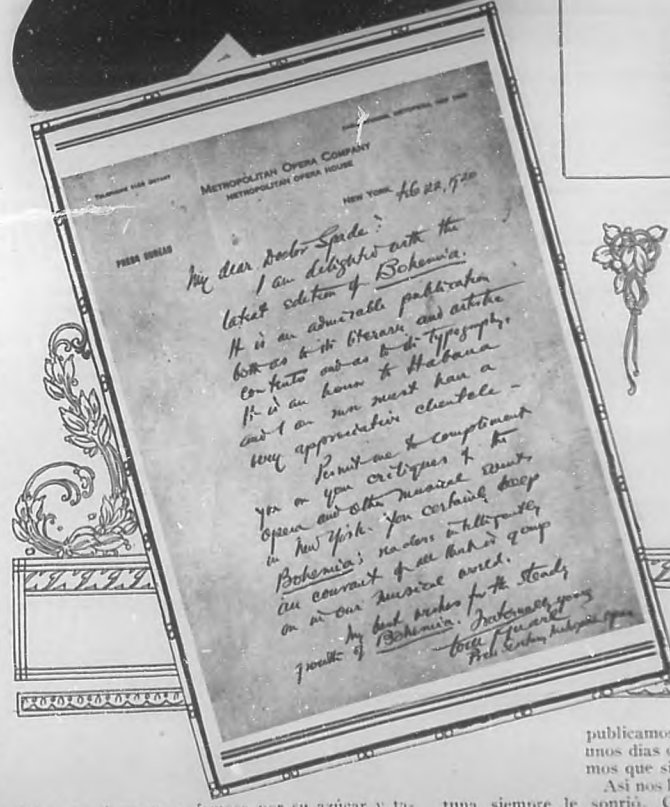 METROPOLITAN OPERA COMPANY
METROPOLITAN OPERA HOUSE
NEW YORK Feb 22, 1920
PRESS BUREAU
My dear Doctor Spade:
I am delighted with the
latest edition of Bohemia.
It is an admirable publication
both as to its literary and artistic
contents and as to its typography.
It is an honor to Habana
and I am sure must have a
very appreciative clientele -
Permit me to compliment
you on your critiques of the
opera and other musical events
in New York. You certainly keep
Bohemia's readers intelligently
au courant of all that is going
on in our musical world.
My best wishes for the steady
growth of Bohemia. Fraternally yours
Press Secretary Metropolitan Opera
publicamos
unos dias
mos que si
Asi nos
por su azúcar y ta-
tuna siempre le sonrió